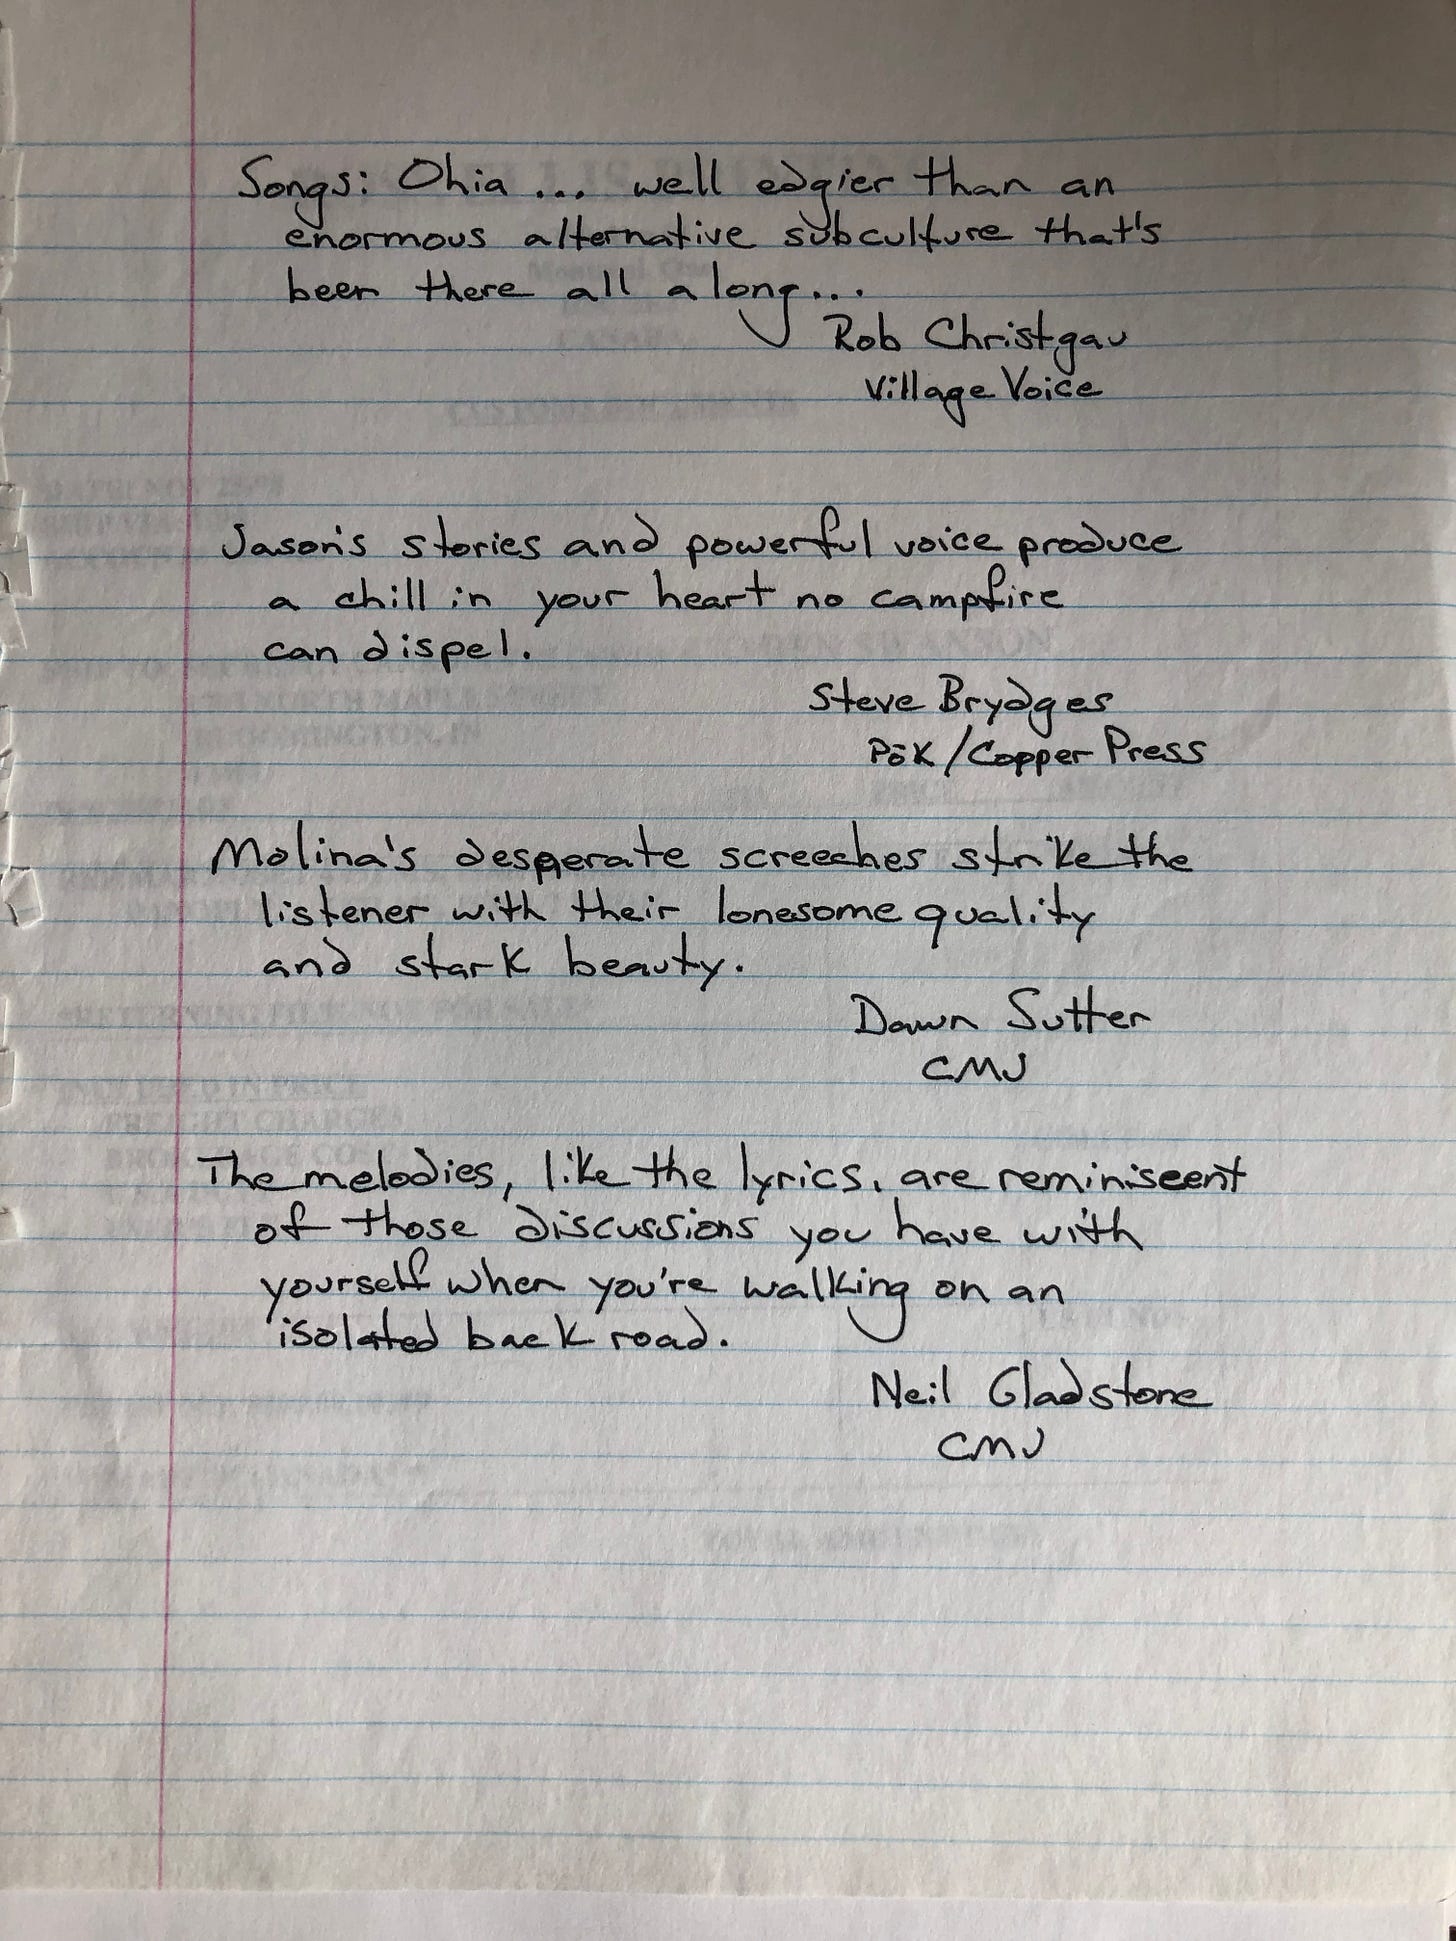 Songs: Ohia ... well edgier than an
enormous alternative subculture that's
been there all along...
Rob Christgau
Village Voice
Jason's stories and powerful voice produce
a chill in your heart no campfire
can dispel.
Steve Brydges
Pök/Copper Press
Molina's desperate screeches strike the
listener with their lonesome quality
and stark beauty.
Dawn Sutter
CMJ
The melodies, like the lyrics, are reminiscent
of those discussions you have with
yourself when you're walking on an
isolated back road.
Neil Gladstone
CMJ